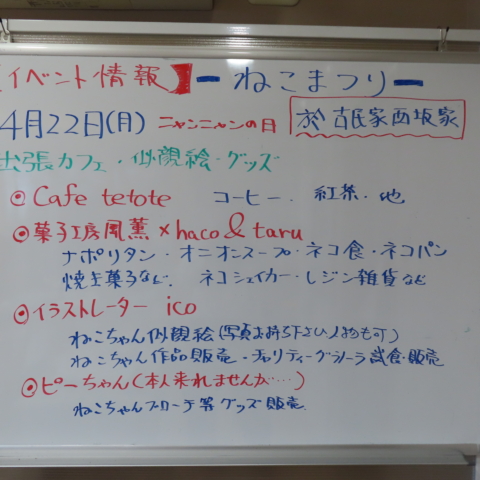 【イベント情報】ーねこまつりー
4月22日(月) ニャンニャンの日 於 古民家西坂家
出張カフェ・似顔絵・グッズ
◎Cafe tetote コーヒー・紅茶・他
◎菓子工房風薫×haco&taru
ナポリタン・オニオンスープ・ネコ食・ネコパン
焼き菓子など. ネコシェイカー・レジン雑貨など
◎イラストレーター ico
ねこちゃん似顔絵(写真お持ち下さい人物も可)
ねこちゃん作品販売・チャリティーグラノーラ試食・販売
◎ピーちゃん(本人来れませんが…)
ねこちゃんブローチ等グッズ販売.